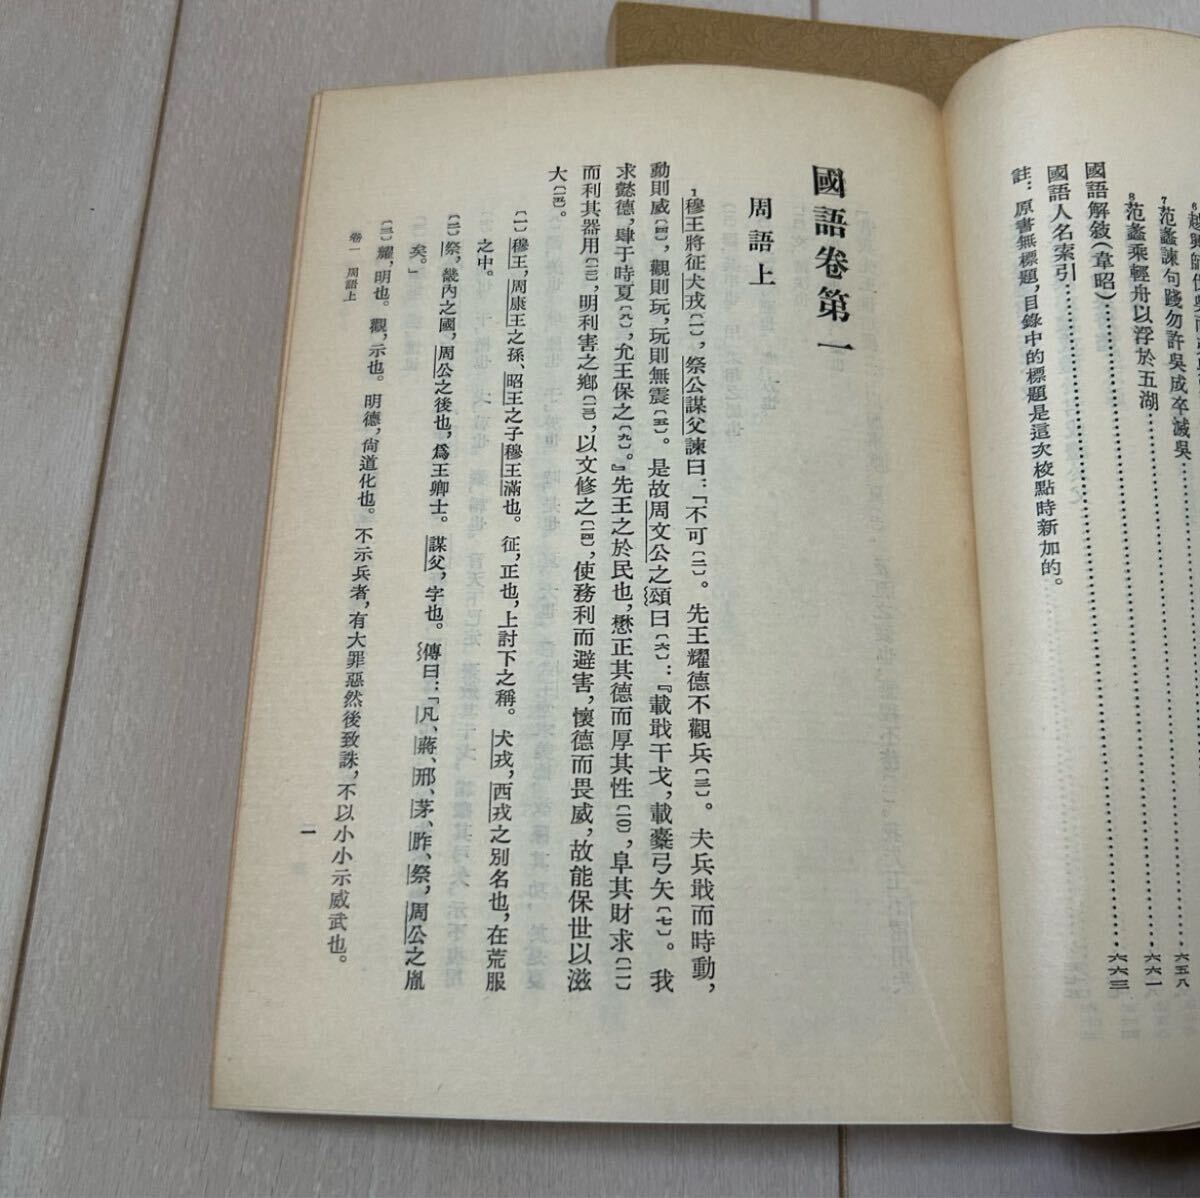 越興師伐吳而弗與戰
范蠡諫句踐勿許吳成卒滅吳……六五八
范蠡乘輕舟以浮於五湖……六六一
國語解敍(韋昭)……
國語人名索引……六六三
註:原書無標題,目錄中的標題是這次校點時新加的。
國語卷第一
周語上
1穆王將征犬戎〔一〕,祭公謀父諫曰:「不可〔二〕。先王耀德不觀兵〔三〕。夫兵戢而時動,
動則威〔四〕,觀則玩,玩則無震〔五〕。是故周文公之頌曰〔六〕:『載戢干戈,載櫜弓矢〔七〕。我
求懿德,肆于時夏〔八〕,允王保之〔九〕。』先王之於民也,懋正其德而厚其性〔一〇〕,阜其財求〔一一〕
而利其器用〔一二〕,明利害之鄉〔一三〕,以文修之〔一四〕,使務利而避害,懷德而畏威,故能保世以滋
大〔一五〕。
〔一〕穆王,周康王之孫、昭王之子穆王滿也。征,正也,上討下之稱。犬戎,西戎之別名也,在荒服
之中。
〔二〕祭,畿內之國,周公之後也,爲王卿士。謀父,字也。傳曰:「凡、蔣、邢、茅、胙、祭,周公之胤
矣。」
〔三〕耀,明也。觀,示也。明德,尚道化也。不示兵者,有大罪惡然後致誅,不以小小示威武也。
卷一 周語上
一